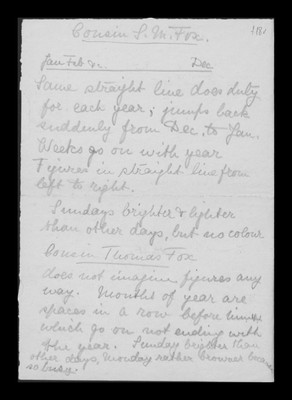 Cousin S. M. Fox.
Jan Feb &c. Dec
Same straight line does duty
for each year; jumps back
suddenly from Dec. to Jan.
Weeks go on with year
Figures in straight line from
left to right.
Sundays brighter & lighter
than other days, but no colour
Cousin Thomas Fox
does not imagine figures any
way. Months of year are
spaces in a row before him
which go on not ending with
the year. Sunday brighter than
other days, Monday rather browner because
so busy.